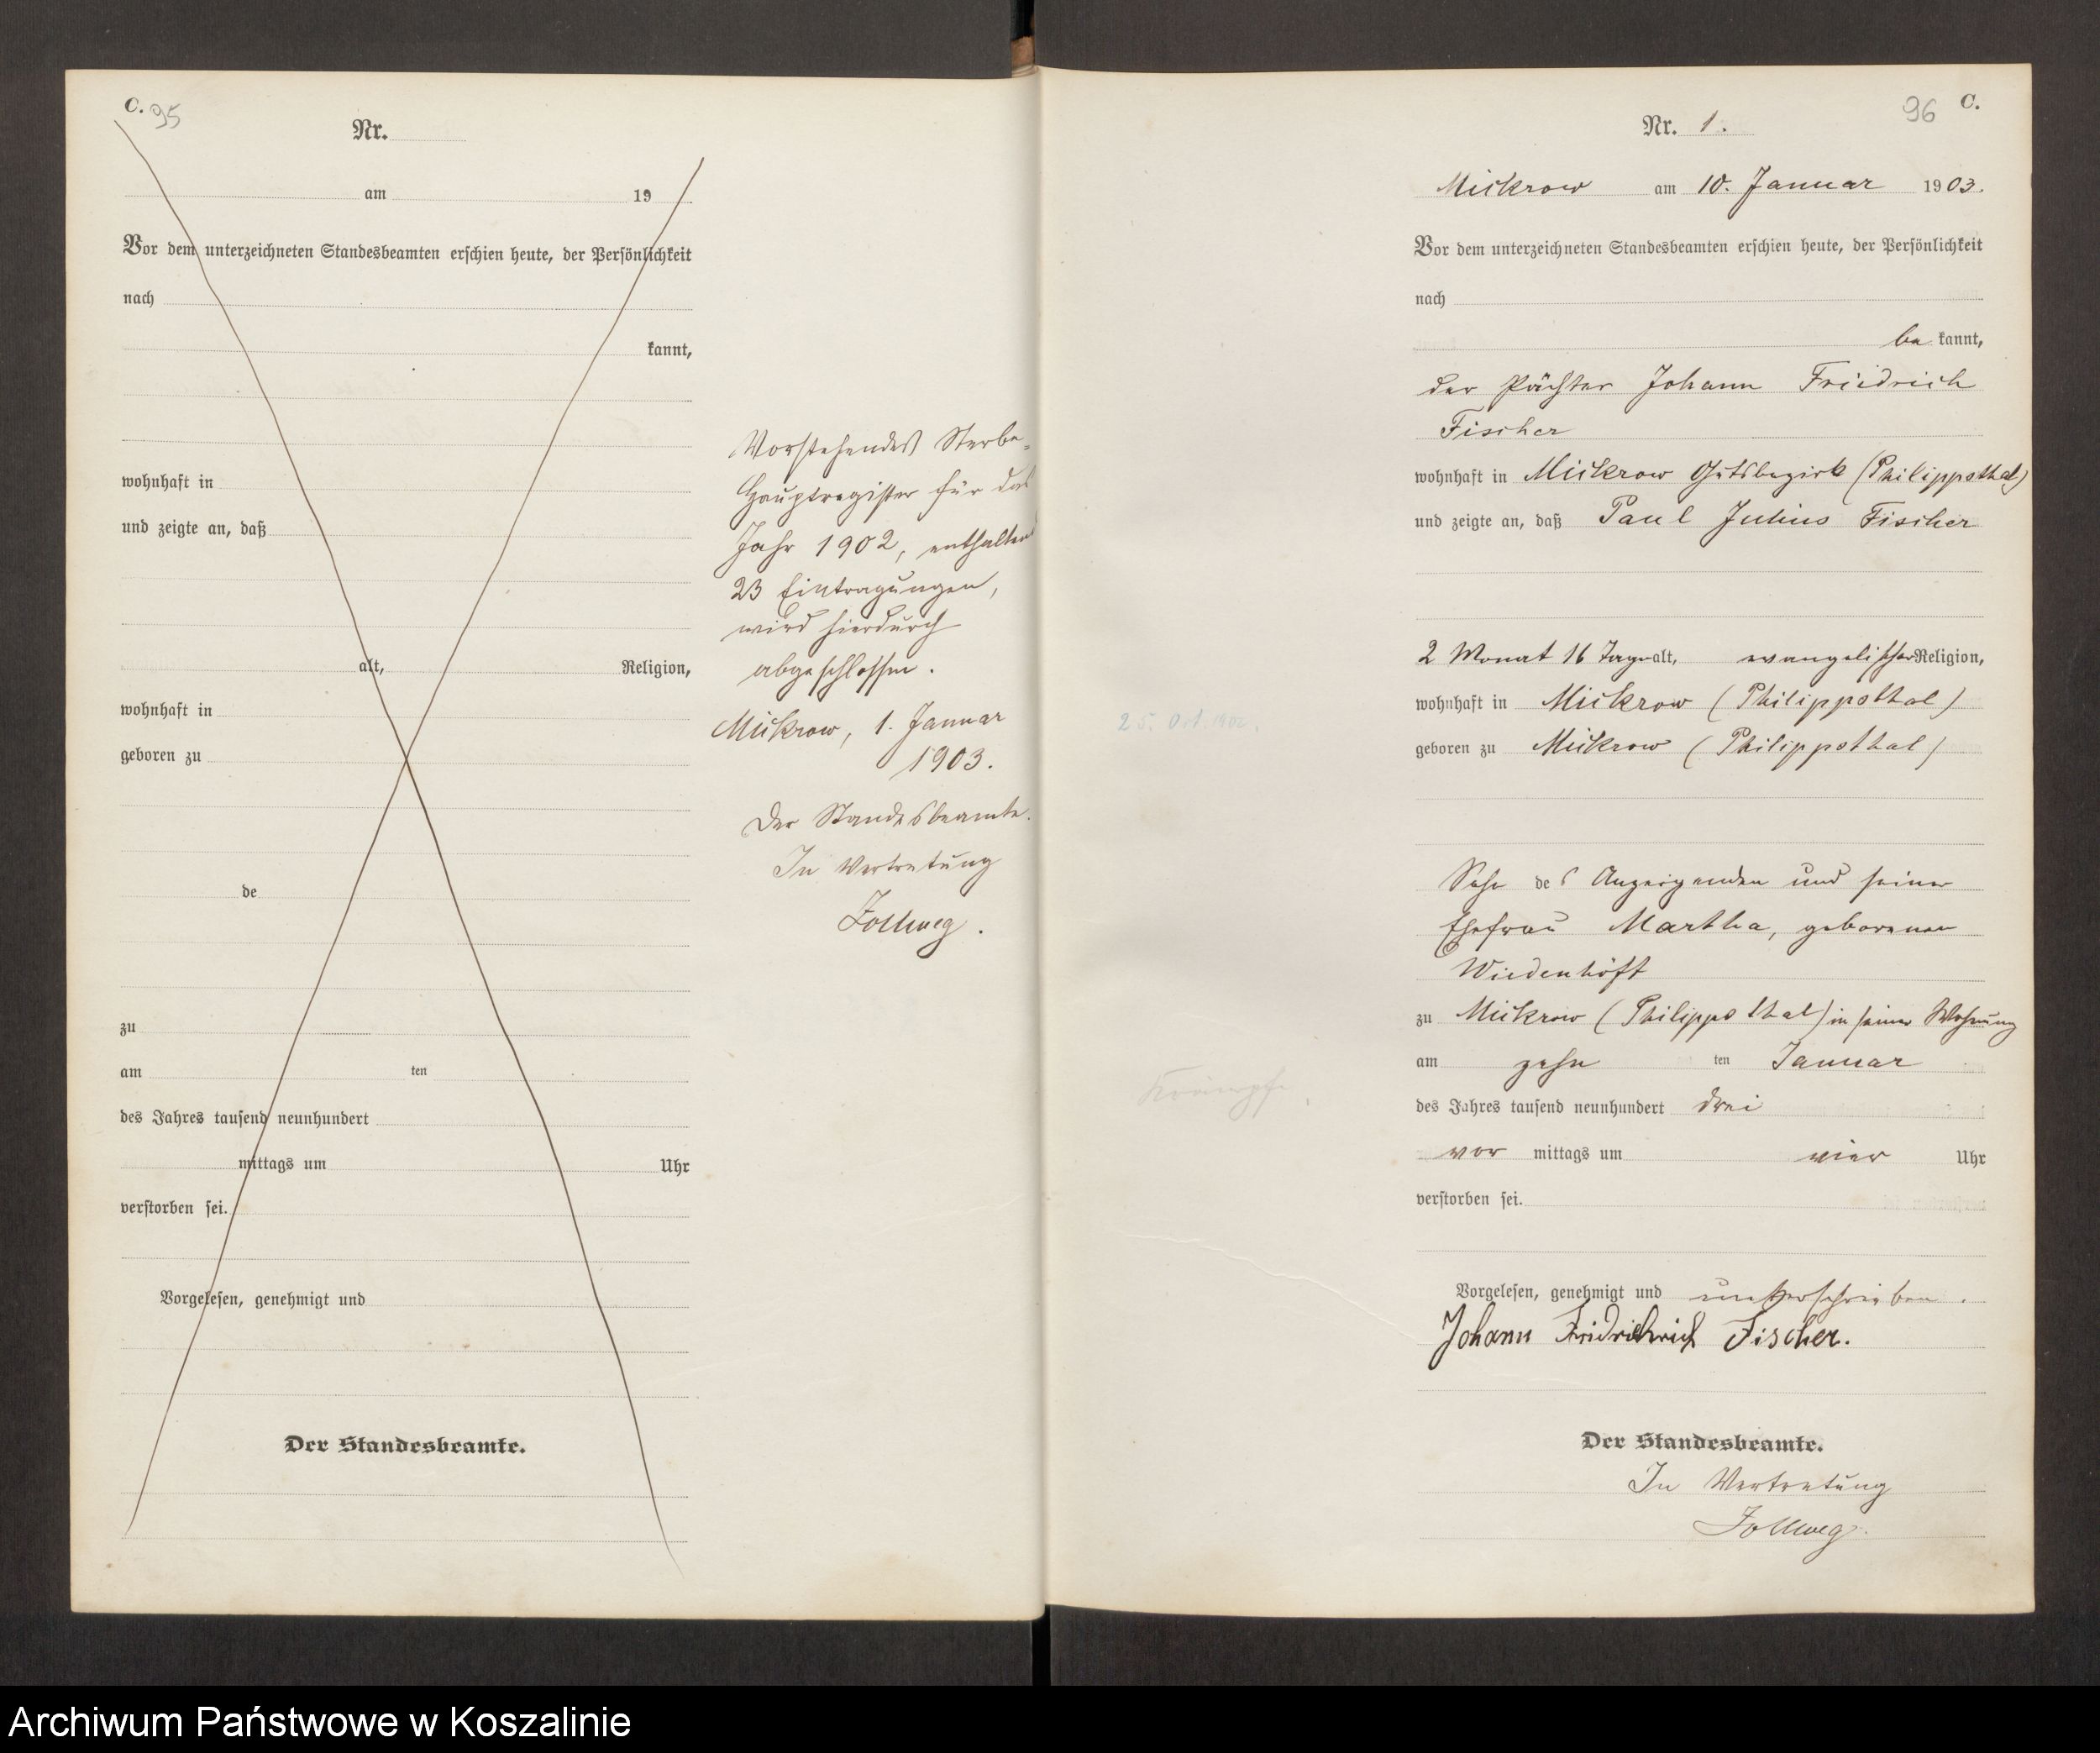 C. 95
Nr.
am 19
Vor dem unterzeichneten Standesbeamten erschien heute, der Persönlichkeit
nach
kannt,
wohnhaft in
und zeigte an, daß
alt, Religion,
wohnhaft in
geboren zu
de
zu
am ten
des Jahres tausend neunhundert
mittags um Uhr
verstorben sei.
Vorgelesen, genehmigt und
Der Standesbeamte.
Vorstehendes Sterbe-
Hauptregister für das
Jahr 1902, enthaltend
23 Eintragungen,
wird hierdurch
abgeschlossen.
Mickrow, 1. Januar
1903.
Der Standesbeamte.
In Vertretung
Zollweg.
96 C.
Nr. 1.
Mickrow am 10. Januar 1903.
Vor dem unterzeichneten Standesbeamten erschien heute, der Persönlichkeit
nach
be kannt,
der Pächter Johann Friedrich
Fischer
wohnhaft in Mickrow Gutsbezirk (Philippsthal)
und zeigte an, daß Paul Julius Fischer
2 Monat 16 Tage alt, evangelischer Religion,
wohnhaft in Mickrow (Philippsthal)
25. Oct. 1902.
geboren zu Mickrow (Philippsthal)
Sohn des Anzeigenden und seiner
Ehefrau Martha, geborenen
Wiedenhöft
zu Mickrow (Philippsthal) in seiner Wohnung
am zehn ten Januar
Krämpfe.
des Jahres tausend neunhundert drei
vor mittags um vier Uhr
verstorben sei.
Vorgelesen, genehmigt und unterschrieben.
Johann Fischer.
Der Standesbeamte.
In Vertretung
Zollweg.
Archiwum Państwowe w Koszalinie